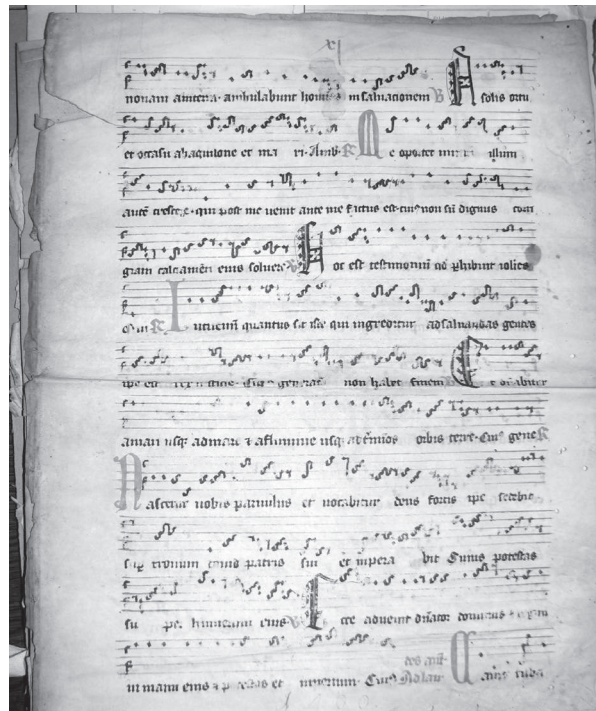 xj
nouam amicta · ambulabunt homines in saluacionem A solis ortu
et occasu ab aquilone et ma ri · Amb M e oportet illum
autē crescere · qui post me uenit ante me factus est · cuiꝰ non sū dignus cori
giam calciamēti eius soluere H oc est testimoniū qd phibuit iohes
Intuemī quantus sit iste qui ingreditur ad saluandas gentes
ipe est rex iusticie · Cuiꝰ generac non habet finem E t dn̄abitur
a mari usqꝫ ad mare et a flumine usqꝫ ad t̄minos orbis terre · Cuiꝰ gene
N ascetur nobis paruulus et uocabitur deus fortis ipe sedebit
sup tronum dauid patris sui et impera bit Cuius potestas
su per humerum eius E cce aduenit dn̄ator dominus
in manu eius potestas et imperium · Cuiꝰ